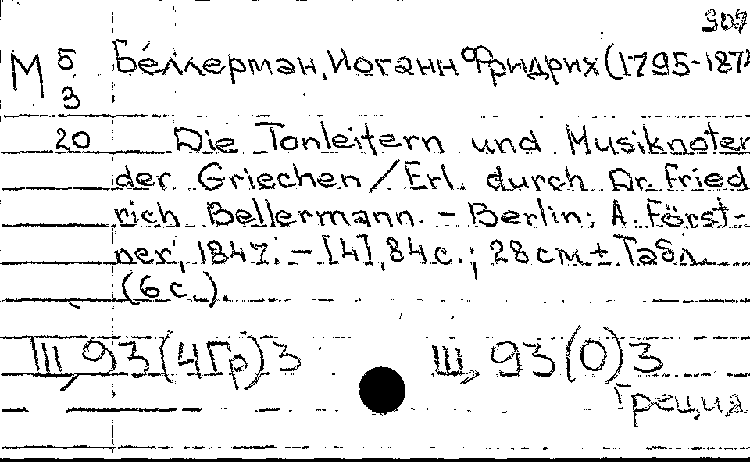 909
М б/3 Беллерман, Иоганн Фридрих (1795-187
20 Die Tonleitern und Musiknoten
der Griechen / Erl. durch Dr. Fried
rich Bellermann. – Berlin: A. Först-
ner, 1847. – [4], 84 с.; 28 см + Табл.
(6 с.).
Щ 93(4Гр)3 Щ 93(0)3
Греция